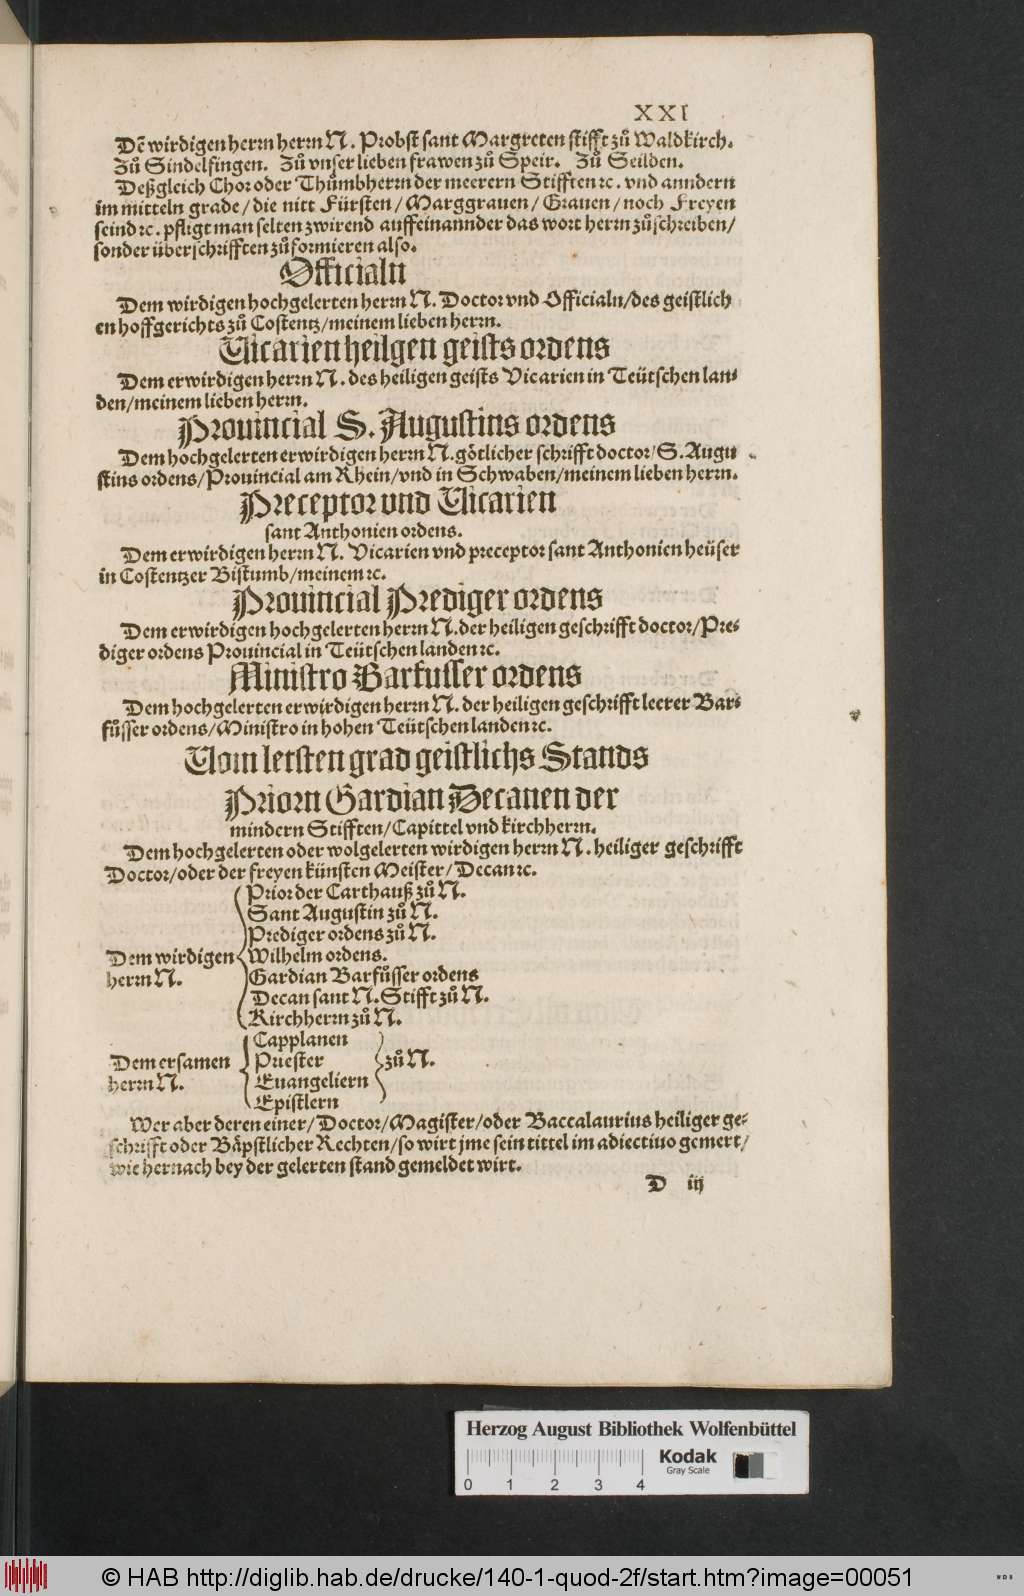 XXI
Dē wirdigen herrn herrn N. Probst sant Margreten stifft zů Waldkirch.
Zů Sindelfingen. Zů vnser lieben frawen zů Speir. Zů Seilden.
Deßgleich Chor oder Thůmbherrn der meerern Stifften ꝛc. vnd anndern
im mitteln grade/ die nitt Fürsten/ Marggrauen/ Grauen/ noch Freyen
seind ꝛc. pfligt man selten zwirend auffeinannder das wort herrn zů schreiben/
sonder überschrifften zů formieren also.
Officialn
Dem wirdigen hochgelerten herrn N. Doctor vnd Officialn/des geistlich
en hoffgerichts zů Costentz/meinem lieben herrn.
Vicarien heilgen geists ordens
Dem erwirdigen herrn N. des heiligen geists Vicarien in Teütschen lan⸗
den/meinem lieben herrn.
Prouincial S. Augustins ordens
Dem hochgelerten erwirdigen herrn N. götlicher schrifft doctor/ S. Augu
stins ordens/Prouincial am Rhein/vnd in Schwaben/meinem lieben herrn.
Preceptor vnd Vicarien
sant Anthonien ordens.
Dem erwirdigen herrn N. Vicarien vnd preceptor sant Anthonien heüser
in Costentzer Bistumb/meinem ꝛc.
Prouincial Prediger ordens
Dem erwirdigen hochgelerten herrn N. der heiligen geschrifft doctor/Pre⸗
diger ordens Prouincial in Teütschen landen ꝛc.
Ministro Barfusser ordens
Dem hochgelerten erwirdigen herrn N. der heiligen geschrifft leerer Bar⸗
fůsser ordens/Ministro in hohen Teütschen landen ꝛc.
Vom letsten grad geistlichs Stands
Priorn Gardian Decanen der
mindern Stifften/Capittel vnd kirchherrn.
Dem hochgelerten oder wolgelerten wirdigen herrn N. heiliger geschrifft
Doctor/oder der freyen künsten Meister/ Decan ꝛc.
Prior der Carthauß zů N.
Sant Augustin zů N.
Prediger ordens zů N.
Dem wirdigen Wilhelm ordens.
herrn N. Gardian Barfůsser ordens
Decan sant N. Stifft zů N.
Kirchherrn zů N.
Capplanen
Dem ersamen Priester zů N.
herrn N. Euangeliern
Epistlern
Wer aber deren einer/ Doctor/Magister/oder Baccalaurius heiliger ge⸗
schrifft oder Bäpstlicher Rechten/so wirt jme sein tittel im adiectiuo gemert/
wie hernach bey der gelerten stand gemeldet wirt.
D iij
Herzog August Bibliothek Wolfenbüttel
Kodak
Gray Scale
0 1 2 3 4
© HAB http://diglib.hab.de/drucke/140-1-quod-2f/start.htm?image=00051